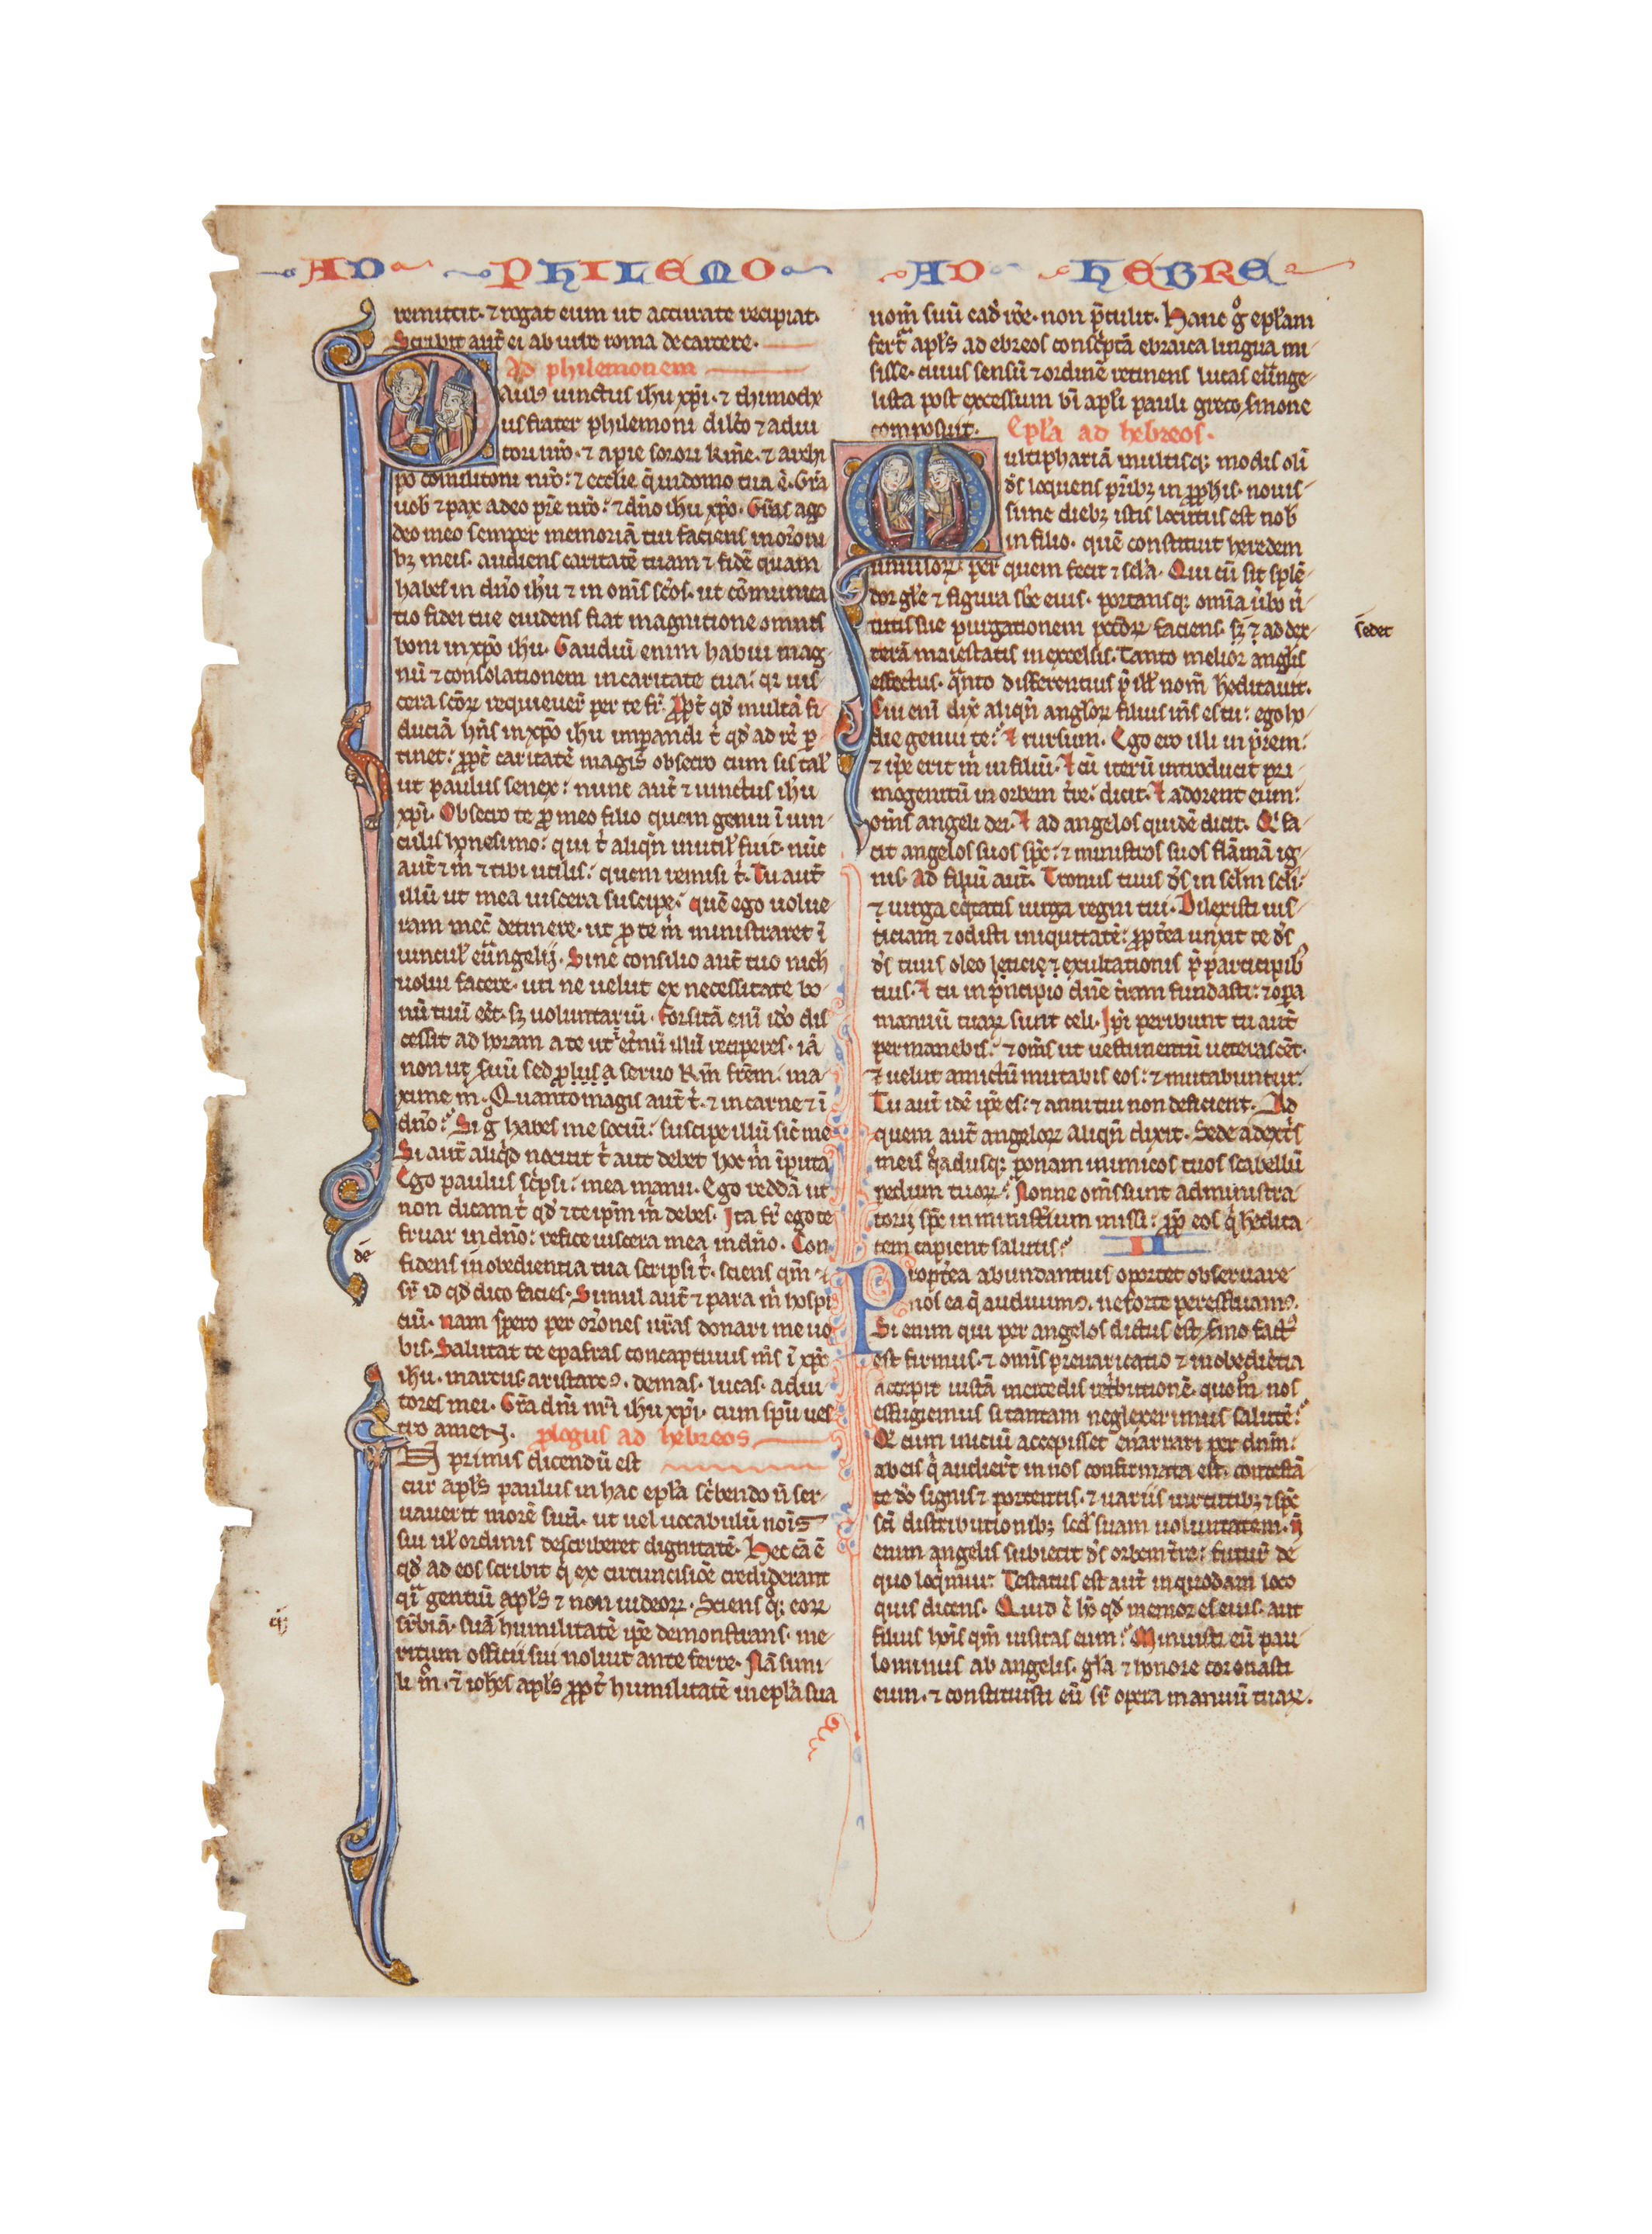 AD PHILEMO
AD HEBRE
remittit· ⁊ rogat eum ut accurate recipiat·
Scribit aut̄ ei ab urbe roma de carcere·
Ad philemonem
Paulꝰ uinctus ihu xp̄i· ⁊ thimothe
us frater philemoni dilc̄o ⁊ adiu
tori nr̄o· ⁊ apie sorori km̄e· ⁊ archi
po comilitoni nr̄o: ⁊ eccl̄ie q̄ in domo tua ē· Gr̄a
uob̄ ⁊ pax a deo pr̄e nr̄o: ⁊ dn̄o ihu xp̄o· Gr̄as ago
deo meo semper memoriā tui faciens in or̄oni
bꝫ meis· audiens caritatē tuam ⁊ fidē quam
habes in dn̄o ihu ⁊ in om̄s sc̄os· ut cōmunica
tio fidei tue euidens fiat in agnitione omnis
boni in xp̄o ihu· Gaudiū enim habui mag
nū ⁊ consolationem in caritate tua: qr uis
cera sc̄oꝝ requieuer̄ per te fr̄· Pp̄t qd̄ multā fi
duciā hn̄s in xp̄o ihu imꝑandi t̄ qd̄ ad rē ꝑ
tinet: ꝓpt̄ caritatē magis obsecro cum sis tal̄
ut paulus senex: nunc aut̄ ⁊ uinctus ihu
xp̄i· Obsecro te ꝓ meo filio quem genui ī uin
culis honesimo: qui t̄ aliqn̄ inutil̄ fuit· nūc
aut̄ ⁊ m̄ ⁊ tibi utilis: quem remisi t̄· Tu aut̄
illū ut mea uiscera suscipe: quē ego uolue
ram mec̄ detinere· ut ꝓ te m̄ ministraret ī
uincul̄ euāngelij· Sine consilio aut̄ tuo nich̄
uolui facere· uti ne uelut ex necessitate bo
nū tuū eēt· sꝫ uoluntariū· Forsitā enī ido dis
cessit ad horam a te ut et̄nū illū reciperes· iā
non ut suū sed plus a seruo km̄ frēm· ma
xime m̄· Quanto magis aut̄ t̄· ⁊ in carne ⁊ ī
dn̄o: Si g̊ habes me sociū: suscipe illū sic̄ me
Si aut̄ aliq̄d nocuit t̄ aut debet hoc m̄ īputa
Ego paulus sc̄psi: mea manu· Ego reddā ut
non dicam t̄ qd̄ ⁊ te ip̄m m̄ debes· Ita fr̄ ego te
fruar in dn̄o: refice uiscera mea in dn̄o· Con
dē
fidens in obedientia tua scripsi t̄· sciens qm̄ ⁊
sr̄ id qd̄ dico facies· Simul aut̄ ⁊ para m̄ hospi
ciū· nam spero per or̄ones ur̄as donari me uo
bis· Salutat te epafras concaptiuus m̄s ī xp̄o
ihu· marcus· aristarcꝰ· demas· lucas· adiu
tores mei· Gr̄a dn̄i nr̄i ihu xp̄i· cum sp̄u ues
tro amen· plogus ad hebreos
In primis dicendū est
cur apl̄s paulus in hac epl̄a sc̄bendo n̄ ser
uauerit morē suū· ut uel uocabulū nois
sui ul̄ ordinis describeret dignitatē· Hec cā ē
qd̄ ad eos scribit q̄ ex circuncisiōe crediderant
q̄i gentiū apl̄s ⁊ non iudeoꝝ· Sciens qꝫ eoꝝ
sr̄biā· suā humilitatē ip̄e demonstrans· me
ritum officii sui noluit ante ferre· Nā simi
li m̊· ⁊ ioh̄s apl̄s ꝓpt̄ humilitatē in epl̄a sua
nom̄ suū eadē rōe· non p̄tulit· Hanc g̊ epl̄am
fert̄ apl̄s ad ebreos consc̄ptā ebraica lingua mi
sisse· cuius sensū ⁊ ordinē retinens lucas euānge
lista post excessum bī apl̄i pauli greco s̄mone
composuit· Epl̄a ad hebreos·
Multiphariā multisqꝫ modis olī
ds̄ loquens pr̄ibꝫ in ꝓph̄is· nouis
sime diebꝫ istis locutus est nob̄
in filio· quē constituit heredem
uniuīsoꝝ· per quem fecit ⁊ scl̄a· Qui cū sit splē
dor gl̄e ⁊ figura sbē eius· portansqꝫ omīa ūbo ū
tutis sue purgationem peccōꝝ faciens· sꝫ ⁊ ad dex
sedet
terā maiestatis in excelsis· Tanto melior angl̄is
effectus· q̄nto differentius p̄ ill̄ nom̄ h̄editauit·
Cui enī dix̄ aliqn̄ angl̄oꝝ filius m̄s es tu: ego ho
die genui te: ⁊ rursum· Ego ero illi in p̄rem:
⁊ ip̄e erit m̄ in filiū· ⁊ cū iterū introducit pri
mogenitū in orbem t̄re: dicit· ⁊ adorent eum:
om̄s angeli dei· ⁊ ad angelos quidē dicit· Q̄ fa
cit angelos suos sp̄c: ⁊ ministros suos flāmā ig
nis· Ad filiū aut̄· Tronus tuus ds̄ in scl̄m scl̄i:
⁊ uirga eq̄tatis uirga regni tui· Dilexisti ius
ticiam ⁊ odisti iniquitatē: ꝓpt̄ea unxit te ds̄
ds̄ tuus oleo leticie ⁊ exultationis p̄ participibꝰ
tuis· ⁊ tu in p̄ncipio dn̄e t̄ram fundasti: ⁊ opa
manuū tuaꝝ sunt celi· Ip̄i peribunt tu aut̄
permanebis: ⁊ om̄s ut uestimentū ueterascēt·
⁊ uelut amictū mutabis eos: ⁊ mutabuntur:
Tu aut̄ idē ip̄e es: ⁊ anni tui non deficient· Ad
quem aut̄ angeloꝝ aliqn̄ dixit· Sede a dext̄s
meis q̊adusqꝫ ponam inimicos tuos scabellū
pedum tuoꝝ: Nonne om̄s sunt administra
torij sp̄c in minist̄ium missi: ꝓp̄ eos q̄ h̄edita
tem capient salutis: II
Propt̄ea abundantius oportet obseruare
nos ea q̄ audiuimꝰ· ne forte pereffluamꝰ·
Si enim qui per angelos dictus est s̄mo factꝰ
est firmus· ⁊ om̄is preuaricatio ⁊ inobediētia
accepit iustā mercedis ret̄butionē· quom̊ nos
effugiemus si tantam neglexerimus salutē:
Q̄ cum iniciū accepisset enarrari per dn̄m:
ab eis q̄ audier̄t in nos confirmata est· contestā
te do signis ⁊ portentis· ⁊ uariis uirtutibꝫ ⁊ sp̄c
sc̄i distributionibꝫ scd̄ suam uoluntatem· n̄
enim angelis subiecit ds̄ orbem t̄re: futur̄ de
quo loq̄mur: Testatus est aut̄ in quodam loco
quis dicens· Quid ē hō qd̄ memor es eius· aut
filius hōis qm̄ uisitas eum: Minuisti eū pau
lominus ab angelis· gl̄a ⁊ honore coronasti
eum· ⁊ constituisti eū sr̄ opera manuū tuaꝝ·